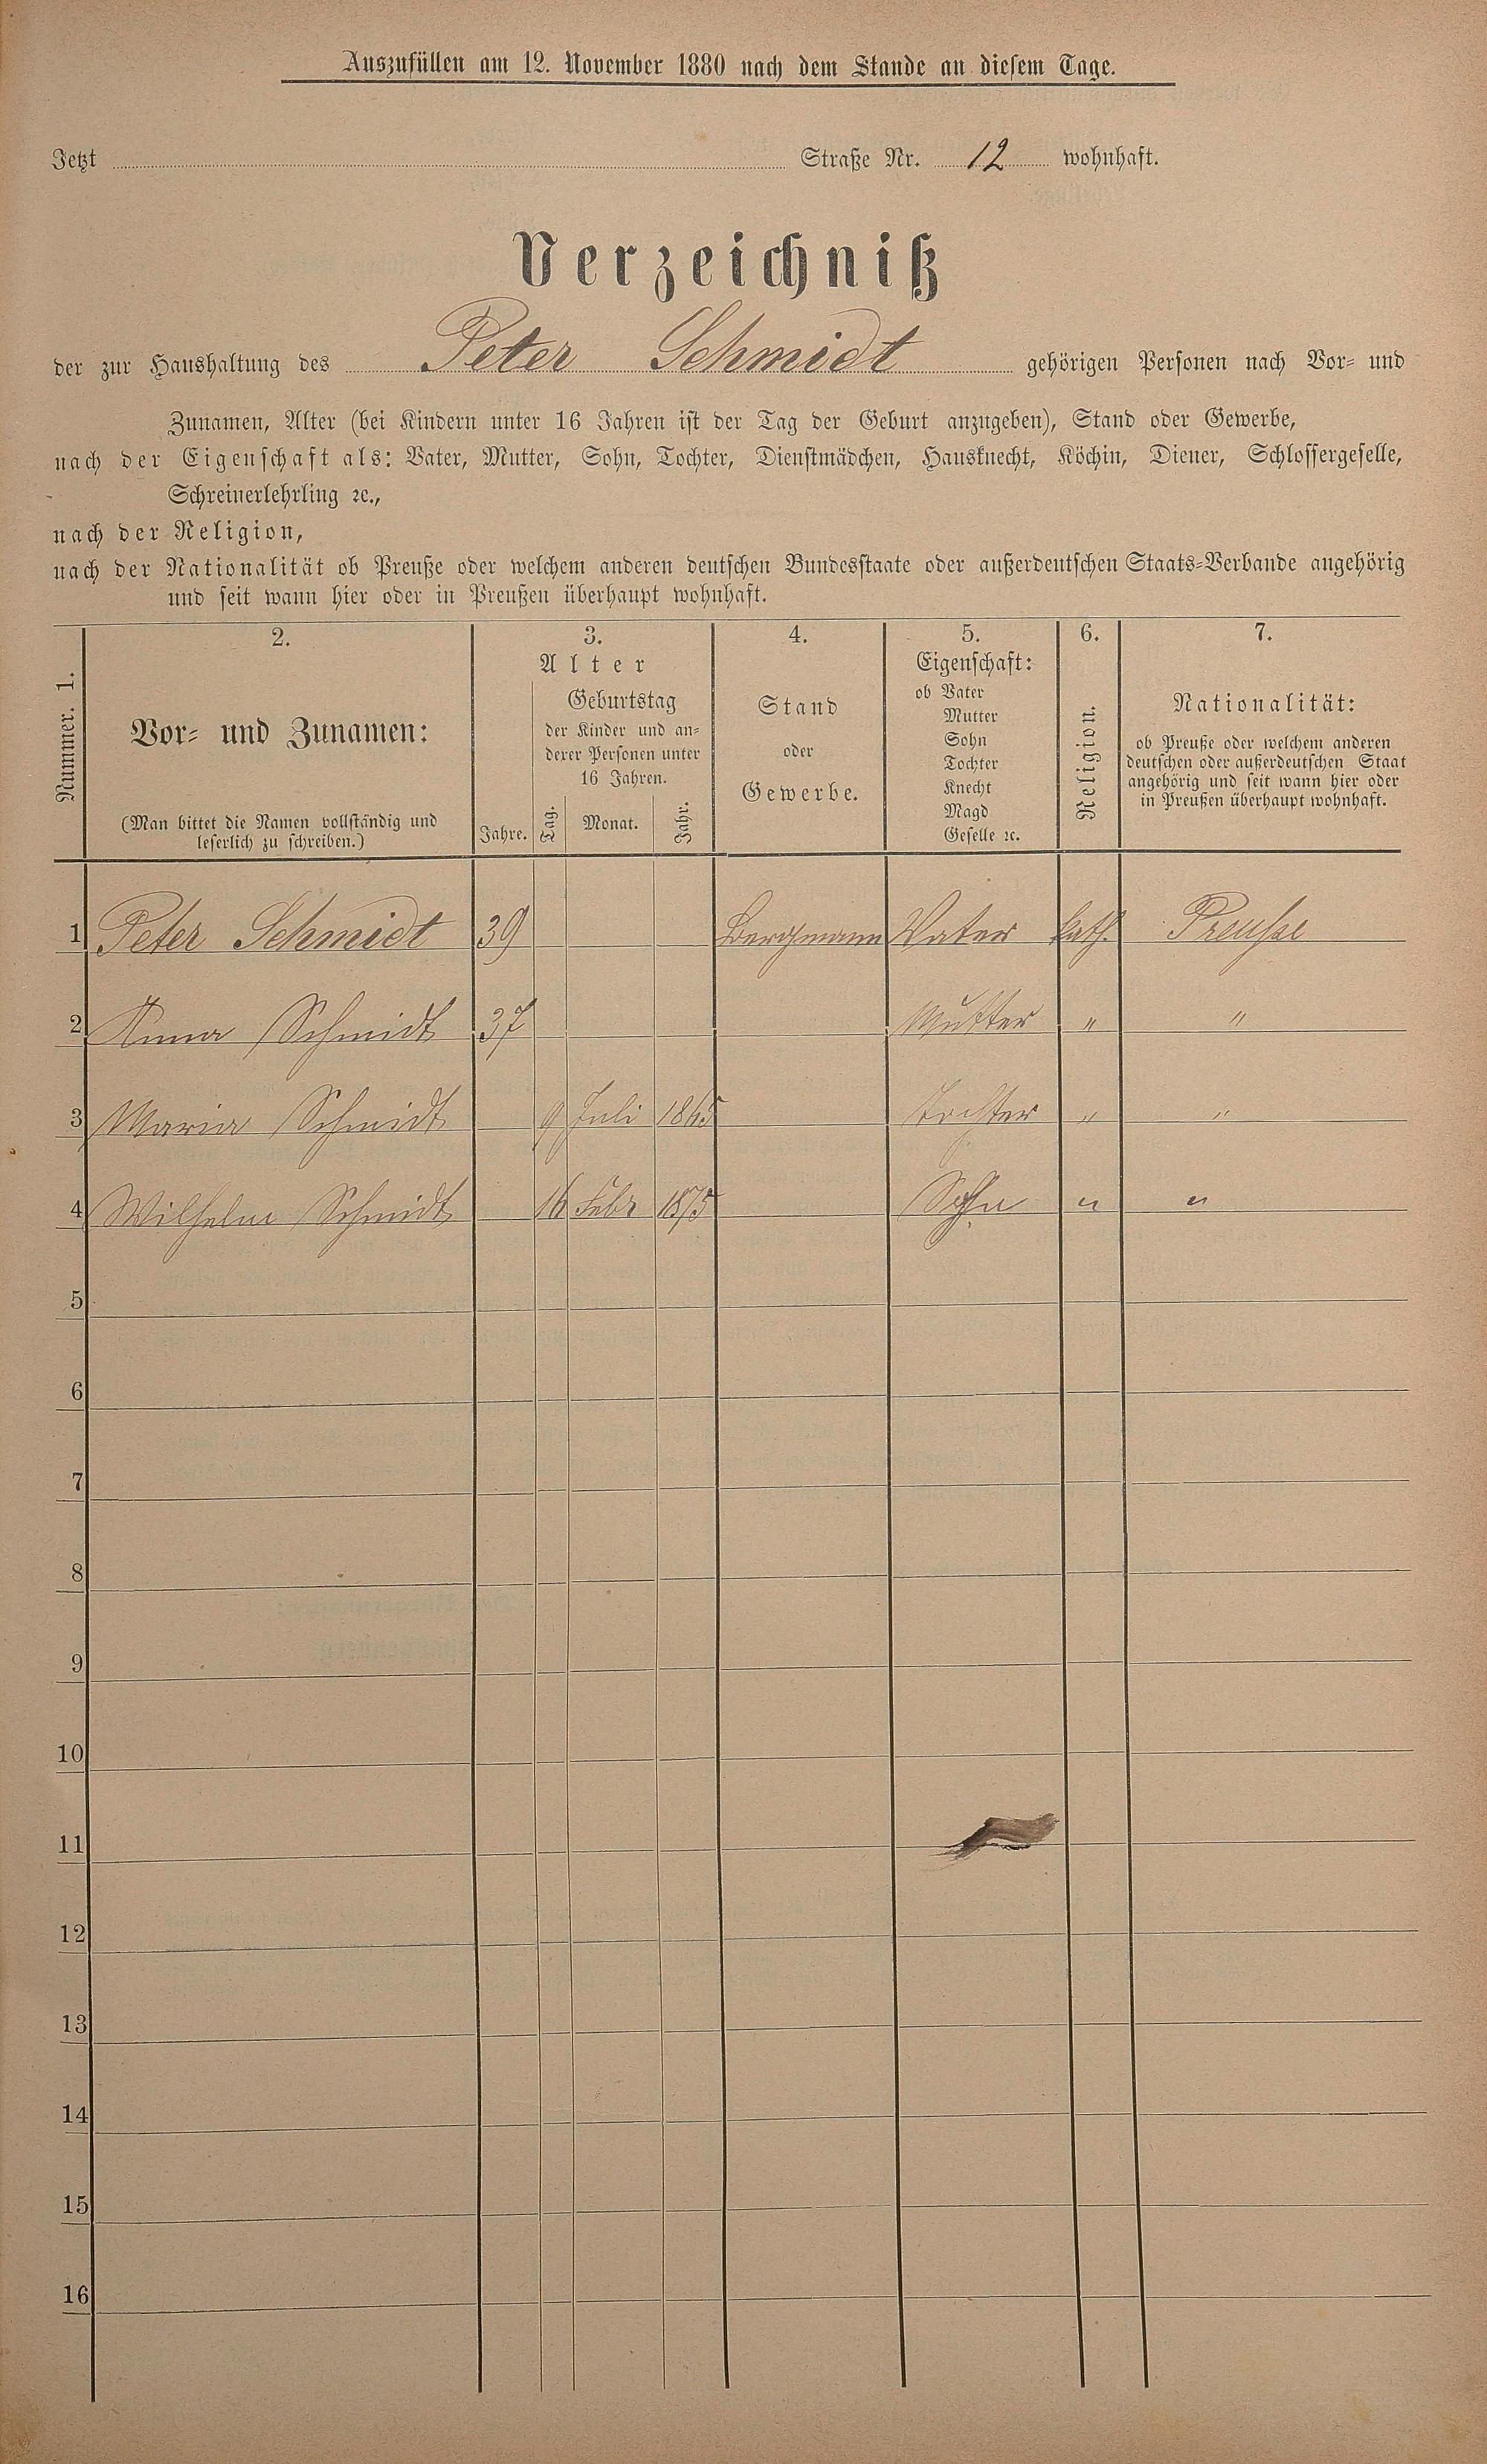 Auszufüllen am 12. November 1880 nach dem Stande an diesem Tage.
Jetzt Straße Nr. 12 wohnhaft.
Verzeichniß
der zur Haushaltung des Peter Schmidt gehörigen Personen nach Vor- und
Zunamen, Alter (bei Kindern unter 16 Jahren ist der Tag der Geburt anzugeben), Stand oder Gewerbe,
nach der Eigenschaft als: Vater, Mutter, Sohn, Tochter, Dienstmädchen, Hausknecht, Köchin, Diener, Schlossergeselle,
Schreinerlehrling ꝛc.,
nach der Religion,
nach der Nationalität ob Preuße oder welchem anderen deutschen Bundesstaate oder außerdeutschen Staats-Verbande angehörig
und seit wann hier oder in Preußen überhaupt wohnhaft.
Nummer. 1.
2.
Vor- und Zunamen:
(Man bittet die Namen vollständig und
leserlich zu schreiben.)
3.
Alter
Jahre.
Geburtstag
der Kinder und an-
derer Personen unter
16 Jahren.
Tag. Monat. Jahr.
4.
Stand
oder
Gewerbe.
5.
Eigenschaft:
ob Vater
Mutter
Sohn
Tochter
Knecht
Magd
Geselle ꝛc.
6.
Religion.
7.
Nationalität:
ob Preuße oder welchem anderen
deutschen oder außerdeutschen Staat
angehörig und seit wann hier oder
in Preußen überhaupt wohnhaft.
1 Peter Schmidt 39 Bergmann Vater kath. Preuße
2 Anna Schmidt 37 Mutter " "
3 Maria Schmidt 9 Juli 1865 Tochter " "
4 Wilhelm Schmidt 16 Febr 1875 Sohn " "
5
6
7
8
9
10
11
12
13
14
15
16